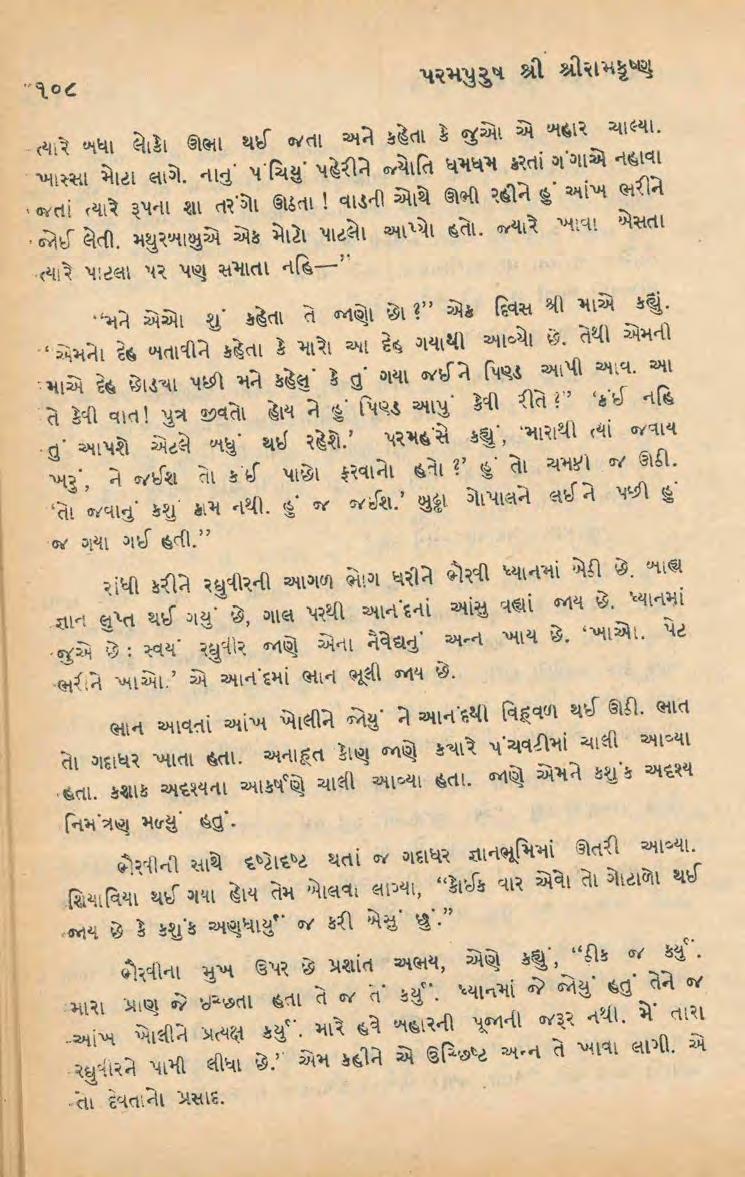 ૧૦૮
પરમપુરુષ શ્રી શ્રીરામકૃષ્ણ
ત્યારે બધા લોકો ઊભા થઈ જતા અને કહેતા કે જુઓ એ બહાર ચાલ્યા.
ખાસ્સા મોટા લાગે. નાનું પંચિયું પહેરીને જ્યોતિ ધમધમ કરતાં ગંગાએ નહાવા
જતાં ત્યારે રૂપના શા તરંગો ઊઠતા ! વાડની ઓથે ઊભી રહીને હું આંખ ભરીને
જોઈ લેતી. મથુરબાબુએ એક મોટો પાટલો આપ્યો હતો. જ્યારે ખાવા બેસતા
ત્યારે પાટલા પર પણ સમાતા નહિ—”
“મને એઓ શું કહેતા તે જાણો છો ?” એક દિવસ શ્રી માએ કહ્યું.
‘એમનો દેહ બતાવીને કહેતા કે મારો આ દેહ ગયાથી આવ્યો છે. તેથી એમની
માએ દેહ છોડ્યા પછી મને કહેલું કે તું ગયા જઈને પિણ્ડ આપી આવ. આ
તે કેવી વાત! પુત્ર જીવતો હોય ને હું પિણ્ડ આપું કેવી રીતે ?” ‘કંઈ નહિ
તું આપશે એટલે બધું થઈ રહેશે.’ પરમહંસે કહ્યું, ‘મારાથી ત્યાં જવાય
ખરું, ને જઈશ તો કંઈ પાછો ફરવાનો હતો ?’ હું તો ચમકી જ ઊઠી.
‘તો જવાનું કશું કામ નથી. હું જ જઈશ.’ બુઢ્ઢા ગોપાલને લઈને પછી હું
જ ગયા ગઈ હતી.”
રાંધી કરીને રઘુવીરની આગળ ભોગ ધરીને ભૈરવી ધ્યાનમાં બેઠી છે. બાહ્ય
જ્ઞાન લુપ્ત થઈ ગયું છે, ગાલ પરથી આનંદનાં આંસુ વહ્યાં જાય છે. ધ્યાનમાં
જુએ છે : સ્વયં રઘુવીર જાણે એના નૈવેદ્યનું અન્ન ખાય છે. ‘ખાઓ. પેટ
ભરીને ખાઓ.’ એ આનંદમાં ભાન ભૂલી જાય છે.
ભાન આવતાં આંખ ખોલીને જોયું ને આનંદથી વિહ્વળ થઈ ઊઠી. ભાત
તો ગદાધર ખાતા હતા. અનાહૂત કોણ જાણે ક્યારે પંચવટીમાં ચાલી આવ્યા
હતા. કશાક અદૃશ્યના આકર્ષણે ચાલી આવ્યા હતા. જાણે એમને કશુંક અદૃશ્ય
નિમંત્રણ મળ્યું હતું.
ભૈરવીની સાથે દૃષ્ટોદૃષ્ટ થતાં જ ગદાધર જ્ઞાનભૂમિમાં ઊતરી આવ્યા.
શિયાવિયા થઈ ગયા હોય તેમ બોલવા લાગ્યા, “કોઈક વાર એવો તો ગોટાળો થઈ
જાય છે કે કશુંક અણધાર્યું જ કરી બેસું છું.”
ભૈરવીના મુખ ઉપર છે પ્રશાંત અભય, એણે કહ્યું, “ઠીક જ કર્યું.
મારા પ્રાણ જે ઇચ્છતા હતા તે જ તેં કર્યું. ધ્યાનમાં જે જોયું હતું તેને જ
આંખ ખોલીને પ્રત્યક્ષ કર્યું. મારે હવે બહારની પૂજાની જરૂર નથી. મેં તારા
રઘુવીરને પામી લીધા છે.’ એમ કહીને એ ઉચ્છિષ્ટ અન્ન તે ખાવા લાગી. એ
તો દેવતાનો પ્રસાદ.